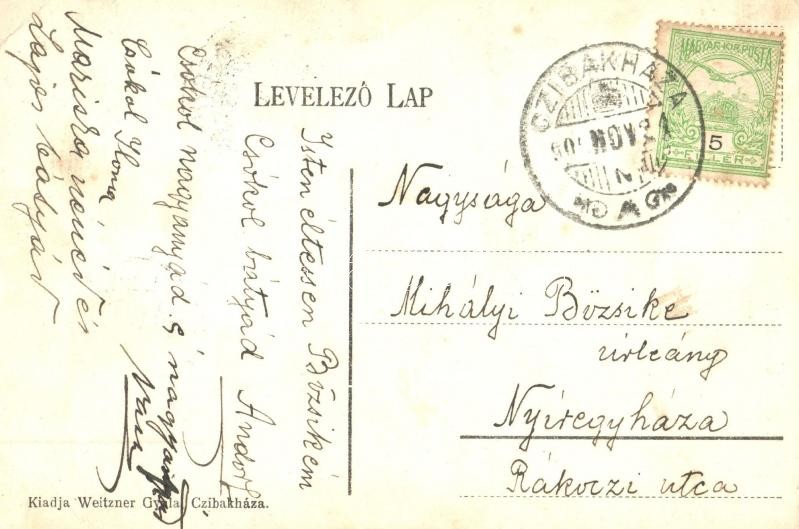 LEVELEZŐ LAP
MAGYAR KIR. POSTA
5
FILLÉR
CZIBAKHÁZA
Nagysága
Mihályi Bözsike
úrleány
Nyíregyháza
Rákoczi utca
Isten éltessen Bözsikém
Csókol bátyád Andor
Csókol nagyanyád és nagyapád
Csókol Ilona
Mariska nénéd és
Lajos bátyád
Kiadja Weitzner Gyula, Czibakháza.